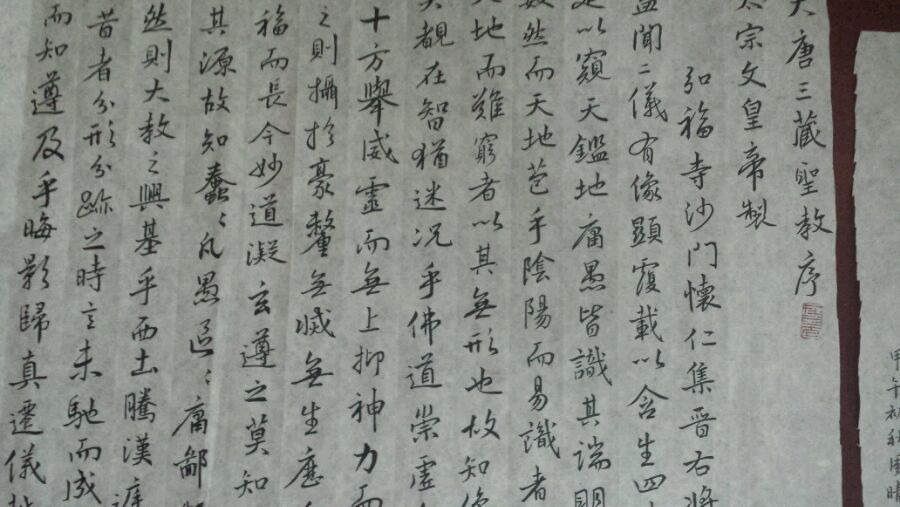 大唐三藏聖教序
太宗文皇帝製
弘福寺沙门懷仁集晋右將
盖聞二儀有像顯覆載以含生四
是以窺天鑑地庸愚皆識其端明
然而天地苞乎陰陽而易識者
天地而難窮者以其無形也故知像
覩在智猶迷況乎佛道崇虚
十方舉威靈而無上抑神力而
之則攝於豪釐無滅無生歷
福而長今妙道凝玄遵之莫知
其源故知蠢〻凡愚區〻庸鄙
然則大教之興基乎西土騰漢庭
昔者分形分跡之時言未馳而成
而知遵及乎晦影歸真遷儀
甲午初秋